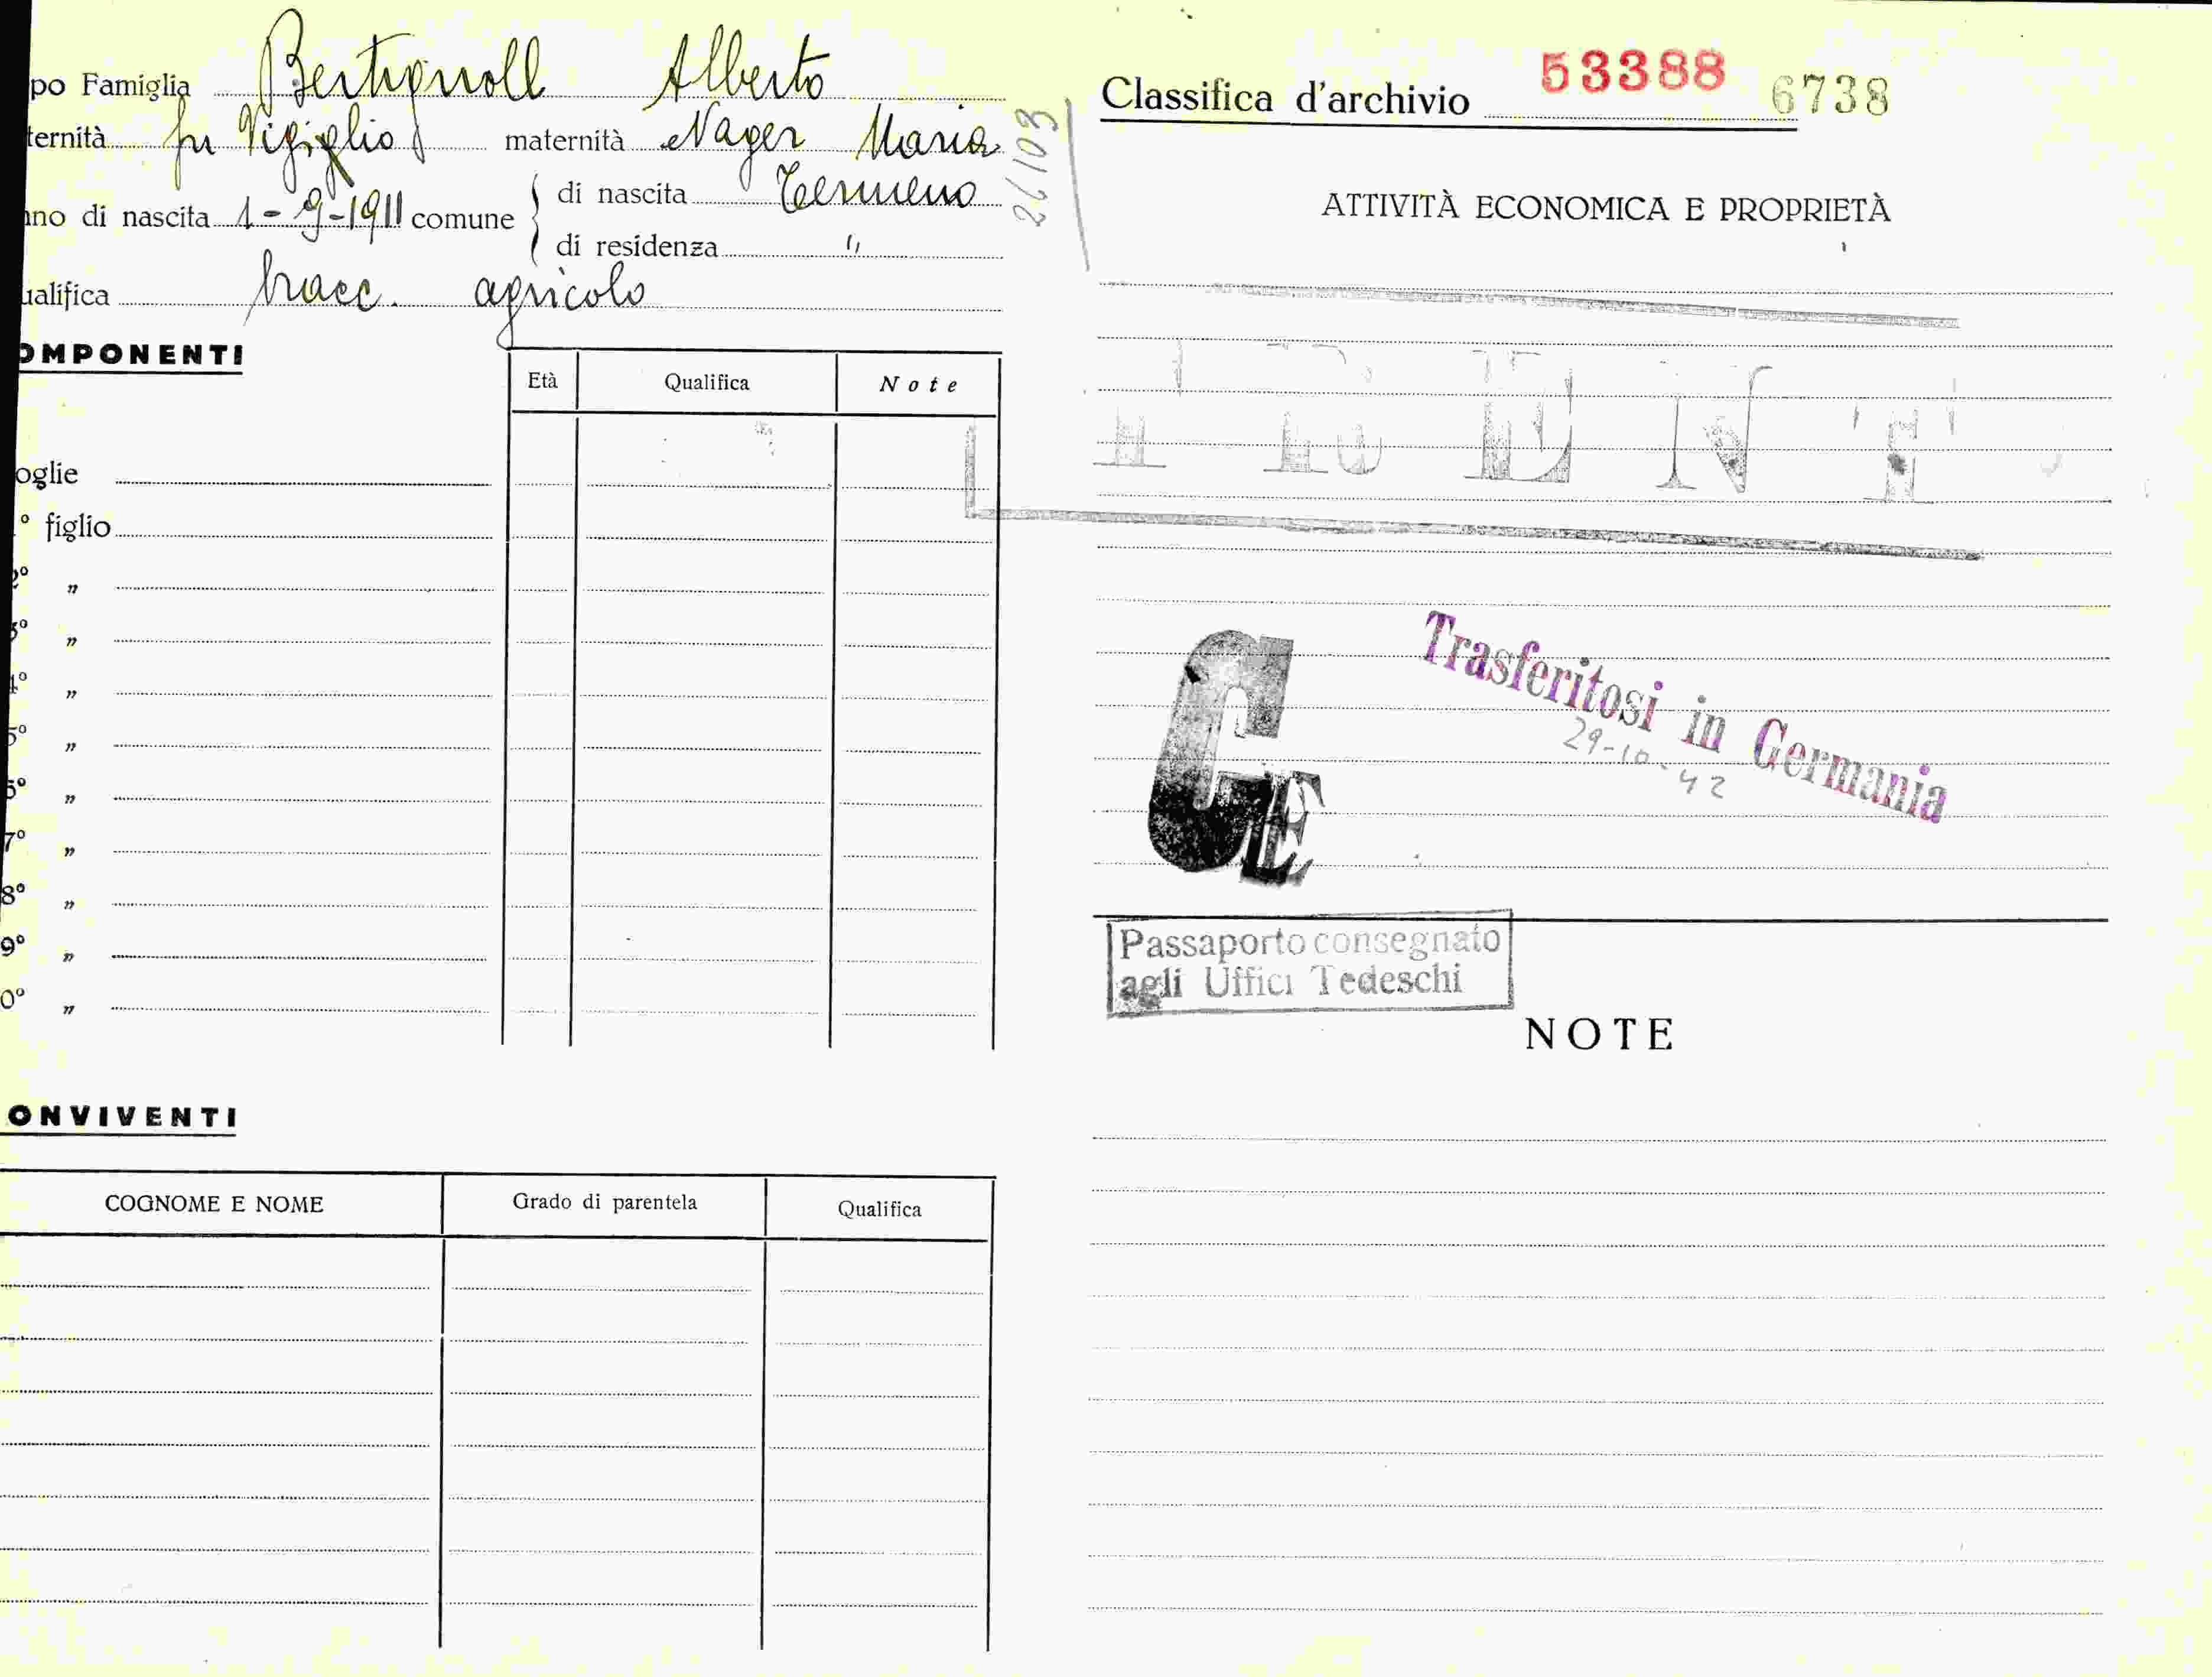 po Famiglia Bertignoll Alberto
ternità fu Vigiglio maternità Nager Maria
no di nascita 1-9-1911 comune di nascita Termeno
di residenza "
alifica bracc. agricolo
26103
OMPONENTI
Età Qualifica Note
oglie
° figlio
2° "
3° "
4° "
5° "
6° "
7° "
8° "
9° "
0° "
ONVIVENTI
COGNOME E NOME Grado di parentela Qualifica
Classifica d'archivio 53388 6738
ATTIVITÀ ECONOMICA E PROPRIETÀ
Trasferitosi in Germania
29-10-42
G E
Passaporto consegnato
agli Uffici Tedeschi
NOTE